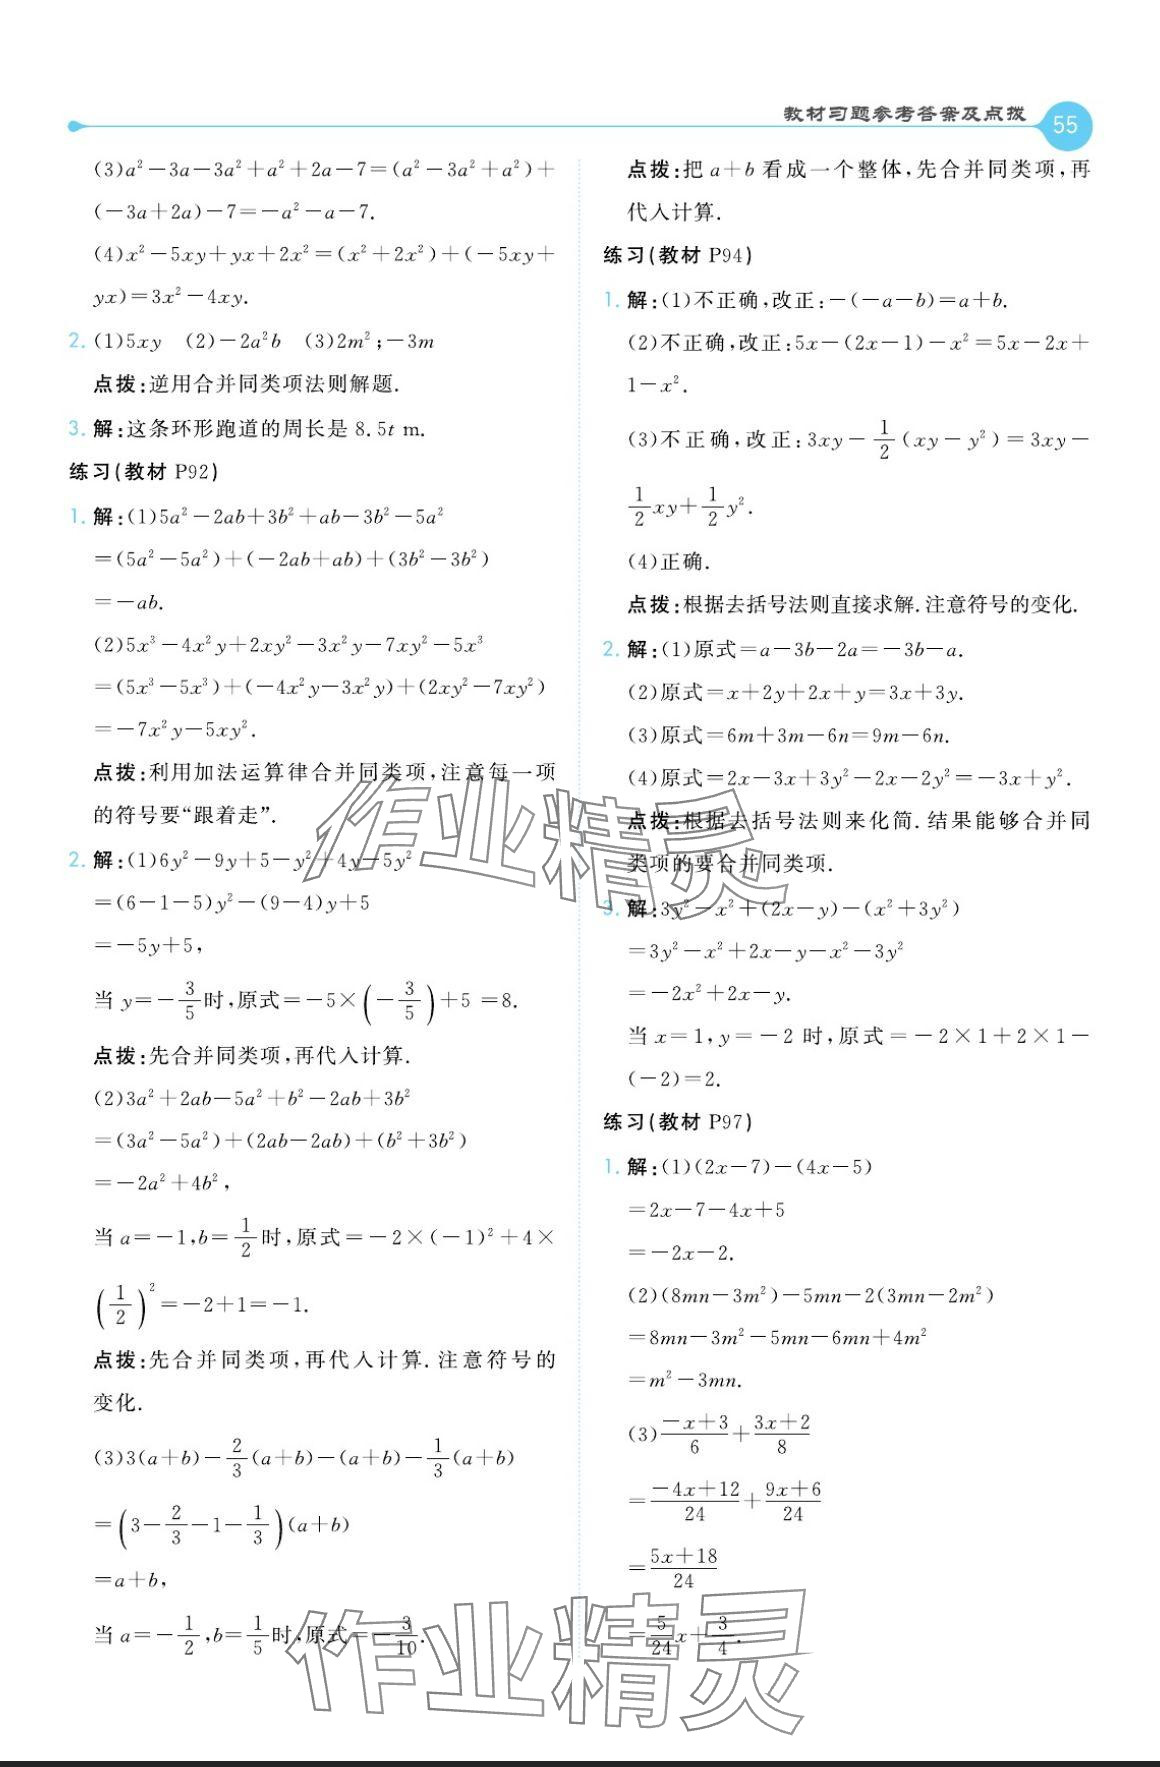 教材习题参考答案及点拨 55
(3)a²-3a-3a²+a²+2a-7=(a²-3a²+a²)+
(-3a+2a)-7=-a²-a-7.
(4)x²-5xy+yx+2x²=(x²+2x²)+(-5xy+
yx)=3x²-4xy.
2. (1)5xy (2)-2a²b (3)2m²;-3m
点拨:逆用合并同类项法则解题.
3. 解:这条环形跑道的周长是 8.5t m.
练习(教材 P92)
1. 解:(1)5a²-2ab+3b²+ab-3b²-5a²
=(5a²-5a²)+(-2ab+ab)+(3b²-3b²)
=-ab.
(2)5x³-4x²y+2xy²-3x²y-7xy²-5x³
=(5x³-5x³)+(-4x²y-3x²y)+(2xy²-7xy²)
=-7x²y-5xy².
点拨:利用加法运算律合并同类项,注意每一项
的符号要“跟着走”.
2. 解:(1)6y²-9y+5-y²+4y-5y²
=(6-1-5)y²-(9-4)y+5
=-5y+5,
当 y=-3/5时,原式=-5×(-3/5)+5 =8.
点拨:先合并同类项,再代入计算.
(2)3a²+2ab-5a²+b²-2ab+3b²
=(3a²-5a²)+(2ab-2ab)+(b²+3b²)
=-2a²+4b²,
当 a=-1,b=1/2时,原式=-2×(-1)²+4×
(1/2)²=-2+1=-1.
点拨:先合并同类项,再代入计算.注意符号的
变化.
(3)3(a+b)-2/3(a+b)-(a+b)-1/3(a+b)
=(3-2/3-1-1/3)(a+b)
=a+b,
当 a=-1/2,b=1/5时,原式=-3/10.
点拨:把 a+b 看成一个整体,先合并同类项,再
代入计算.
练习(教材 P94)
1. 解:(1)不正确,改正:-(-a-b)=a+b.
(2)不正确,改正:5x-(2x-1)-x²=5x-2x+
1-x².
(3)不正确,改正:3xy-1/2(xy-y²)=3xy-
1/2xy+1/2y².
(4)正确.
点拨:根据去括号法则直接求解.注意符号的变化.
2. 解:(1)原式=a-3b-2a=-3b-a.
(2)原式=x+2y+2x+y=3x+3y.
(3)原式=6m+3m-6n=9m-6n.
(4)原式=2x-3x+3y²-2x-2y²=-3x+y².
点拨:根据去括号法则来化简.结果能够合并同
类项的要合并同类项.
3. 解:3y²-x²+(2x-y)-(x²+3y²)
=3y²-x²+2x-y-x²-3y²
=-2x²+2x-y.
当 x=1,y=-2 时,原式=-2×1+2×1-
(-2)=2.
练习(教材 P97)
1. 解:(1)(2x-7)-(4x-5)
=2x-7-4x+5
=-2x-2.
(2)(8mn-3m²)-5mn-2(3mn-2m²)
=8mn-3m²-5mn-6mn+4m²
=m²-3mn.
(3)(-x+3)/6+(3x+2)/8
=(-4x+12)/24+(9x+6)/24
=(5x+18)/24
=5/24x+3/4.
作业精灵
作业精灵